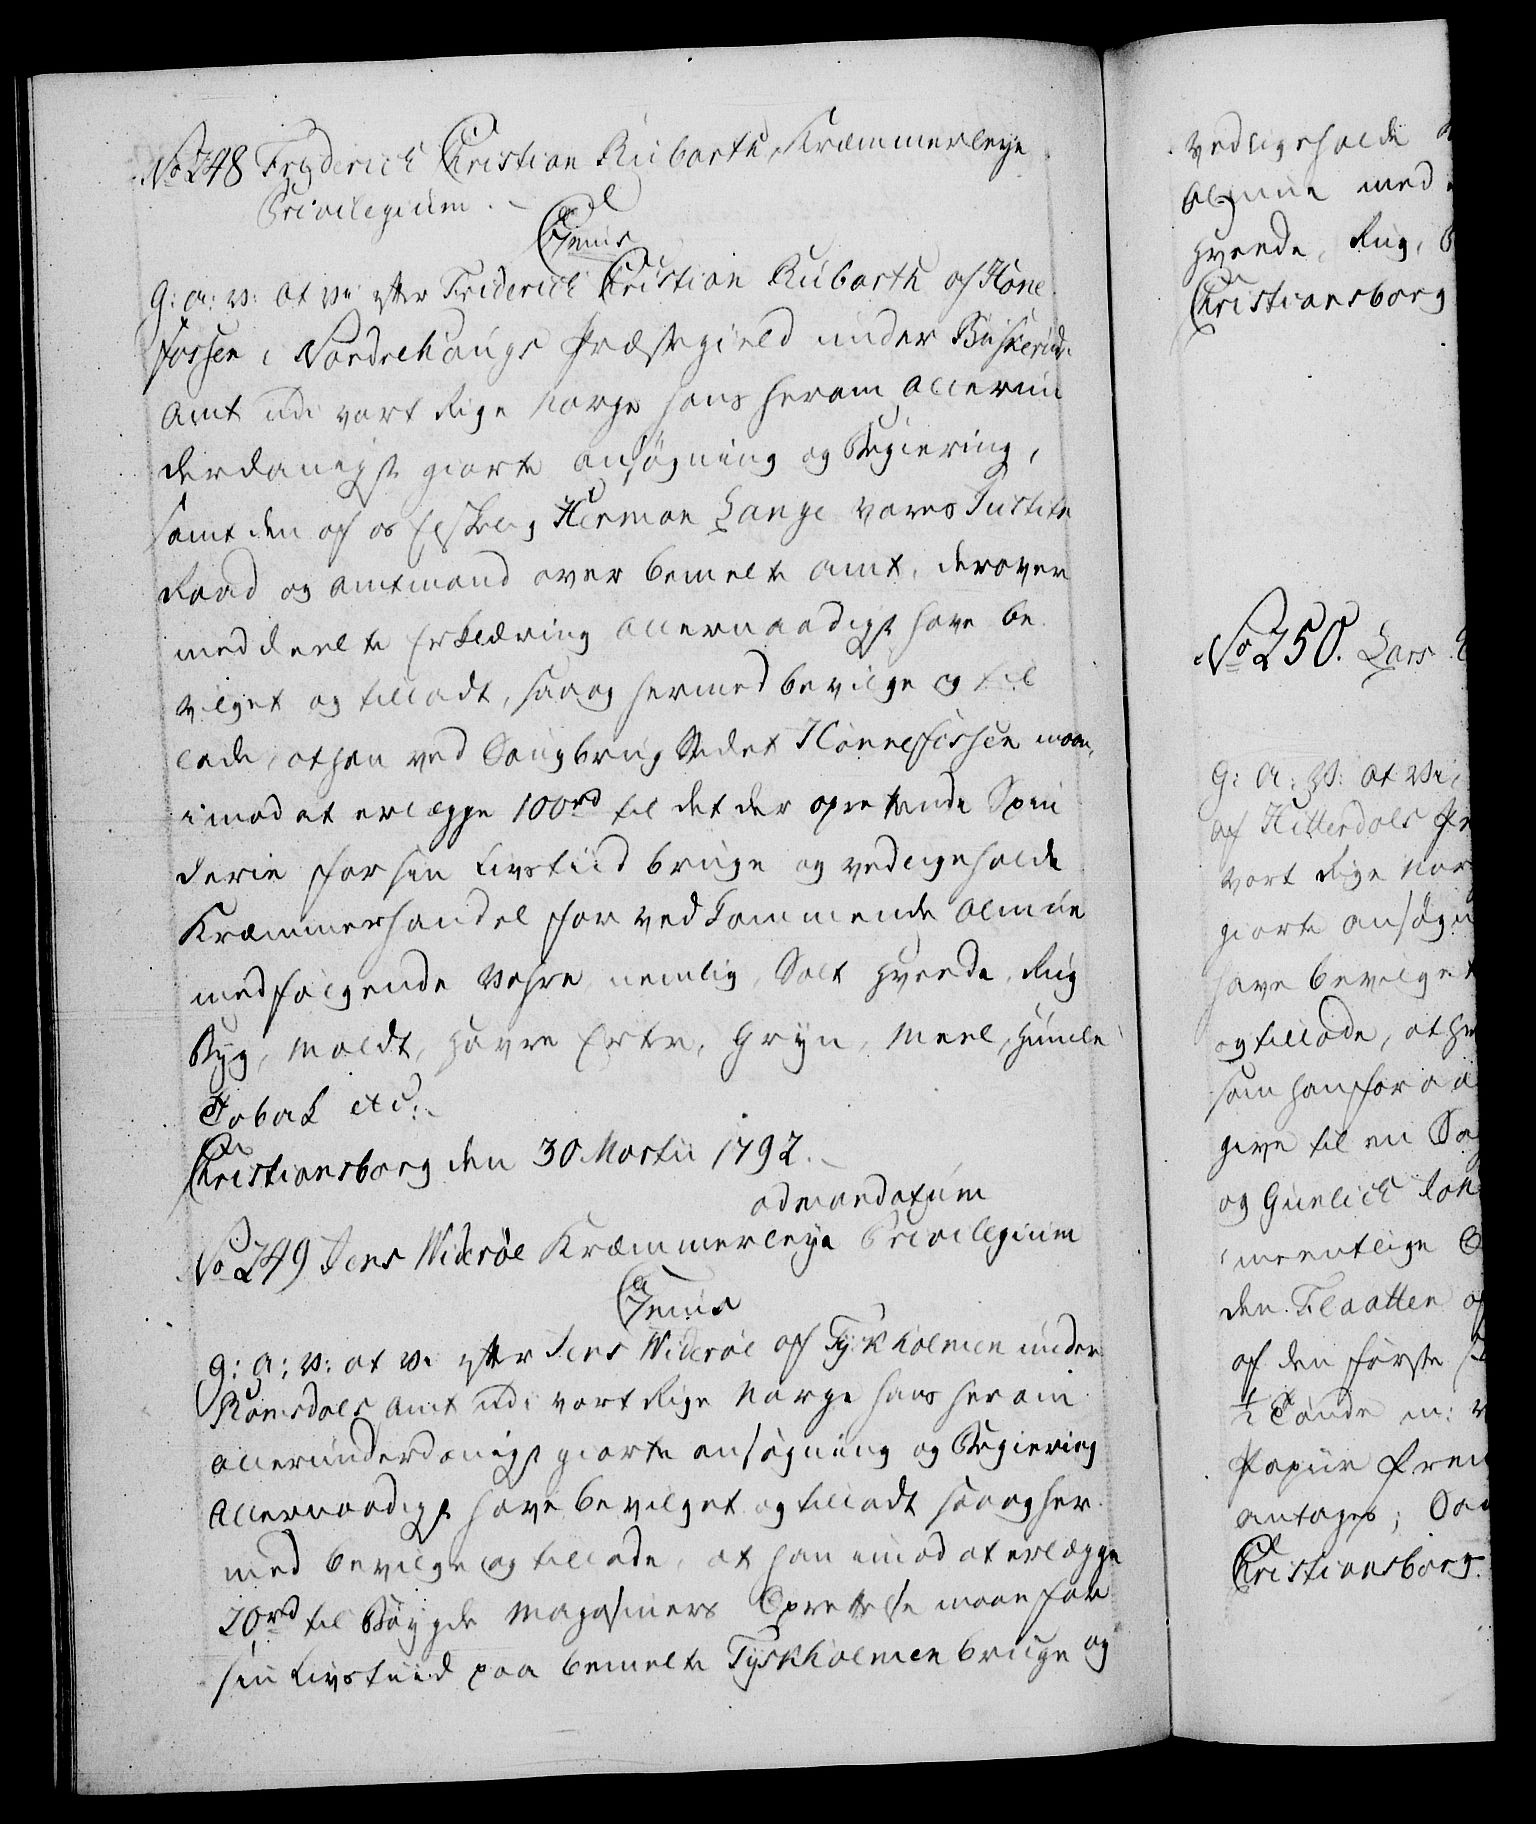 No 248 Friderich Christian Rubarth, Kræmmerleye
Privilegium.
C 7mus
G: A: V: at Vi efter Friderich Christian Rubarth af Høne
fossen i Nordrehougs Præstegield under Buskeruds
Amt udi vort Rige Norge hans herom allerun
derdanigst giorte ansøgning og Begiering,
samt den af os Elskelig Herman Lange vores Justitz
Raad og Amtmand over bemelte Amt, derover
meddeelte Erklæring allernaadigst have be
vilget og tilladt, saa og hermed bevilge og til
lade, at han ved Saugbrug Stædet Hønnefossen maae,
imod at erlægge 100 rd til det der oprettende Spin
derie for sin Livstiid bruge og vedligeholde
Kræmmerhandel for vedkommende Almue
med følgende Vahre, nemlig, Salt Hvede, Rug
Byg, Maldt, Havre Erter, Gryn, Meel, Humle
Tobak etc:
Christiansborg den 30 Martii 1792.
ad mandatum
No 249 Jens Widerøe Kræmmerleye Privilegium
C 7mus
G: A: V: at Vi efter Jens Widerøe af Tyskholmen under
Romsdals Amt udi vort Rige Norge hans herom
allerunderdanigst giorte ansøgning og Begiering
Allernaadigst have bevilget og tilladt saa og her
med bevilge og tillade, at han imod at erlægge
20 rd til Bøygde Magasiners Oprettelse maae for
sin Livstiid paa bemelte Tyskholmen bruge og
vedligeholde
Almue med
Hvede, Rug,
Christiansborg
No 250. Lars
G: A: V: at Vi,
af Hitterdals
vort Rige Nor
giorte ansøgn
have bevilget
og tillade, at
som han for
give til en
og Gunlich
den Flaatten
af den første
½ Tønde
Papiir
antages;
Christiansborg